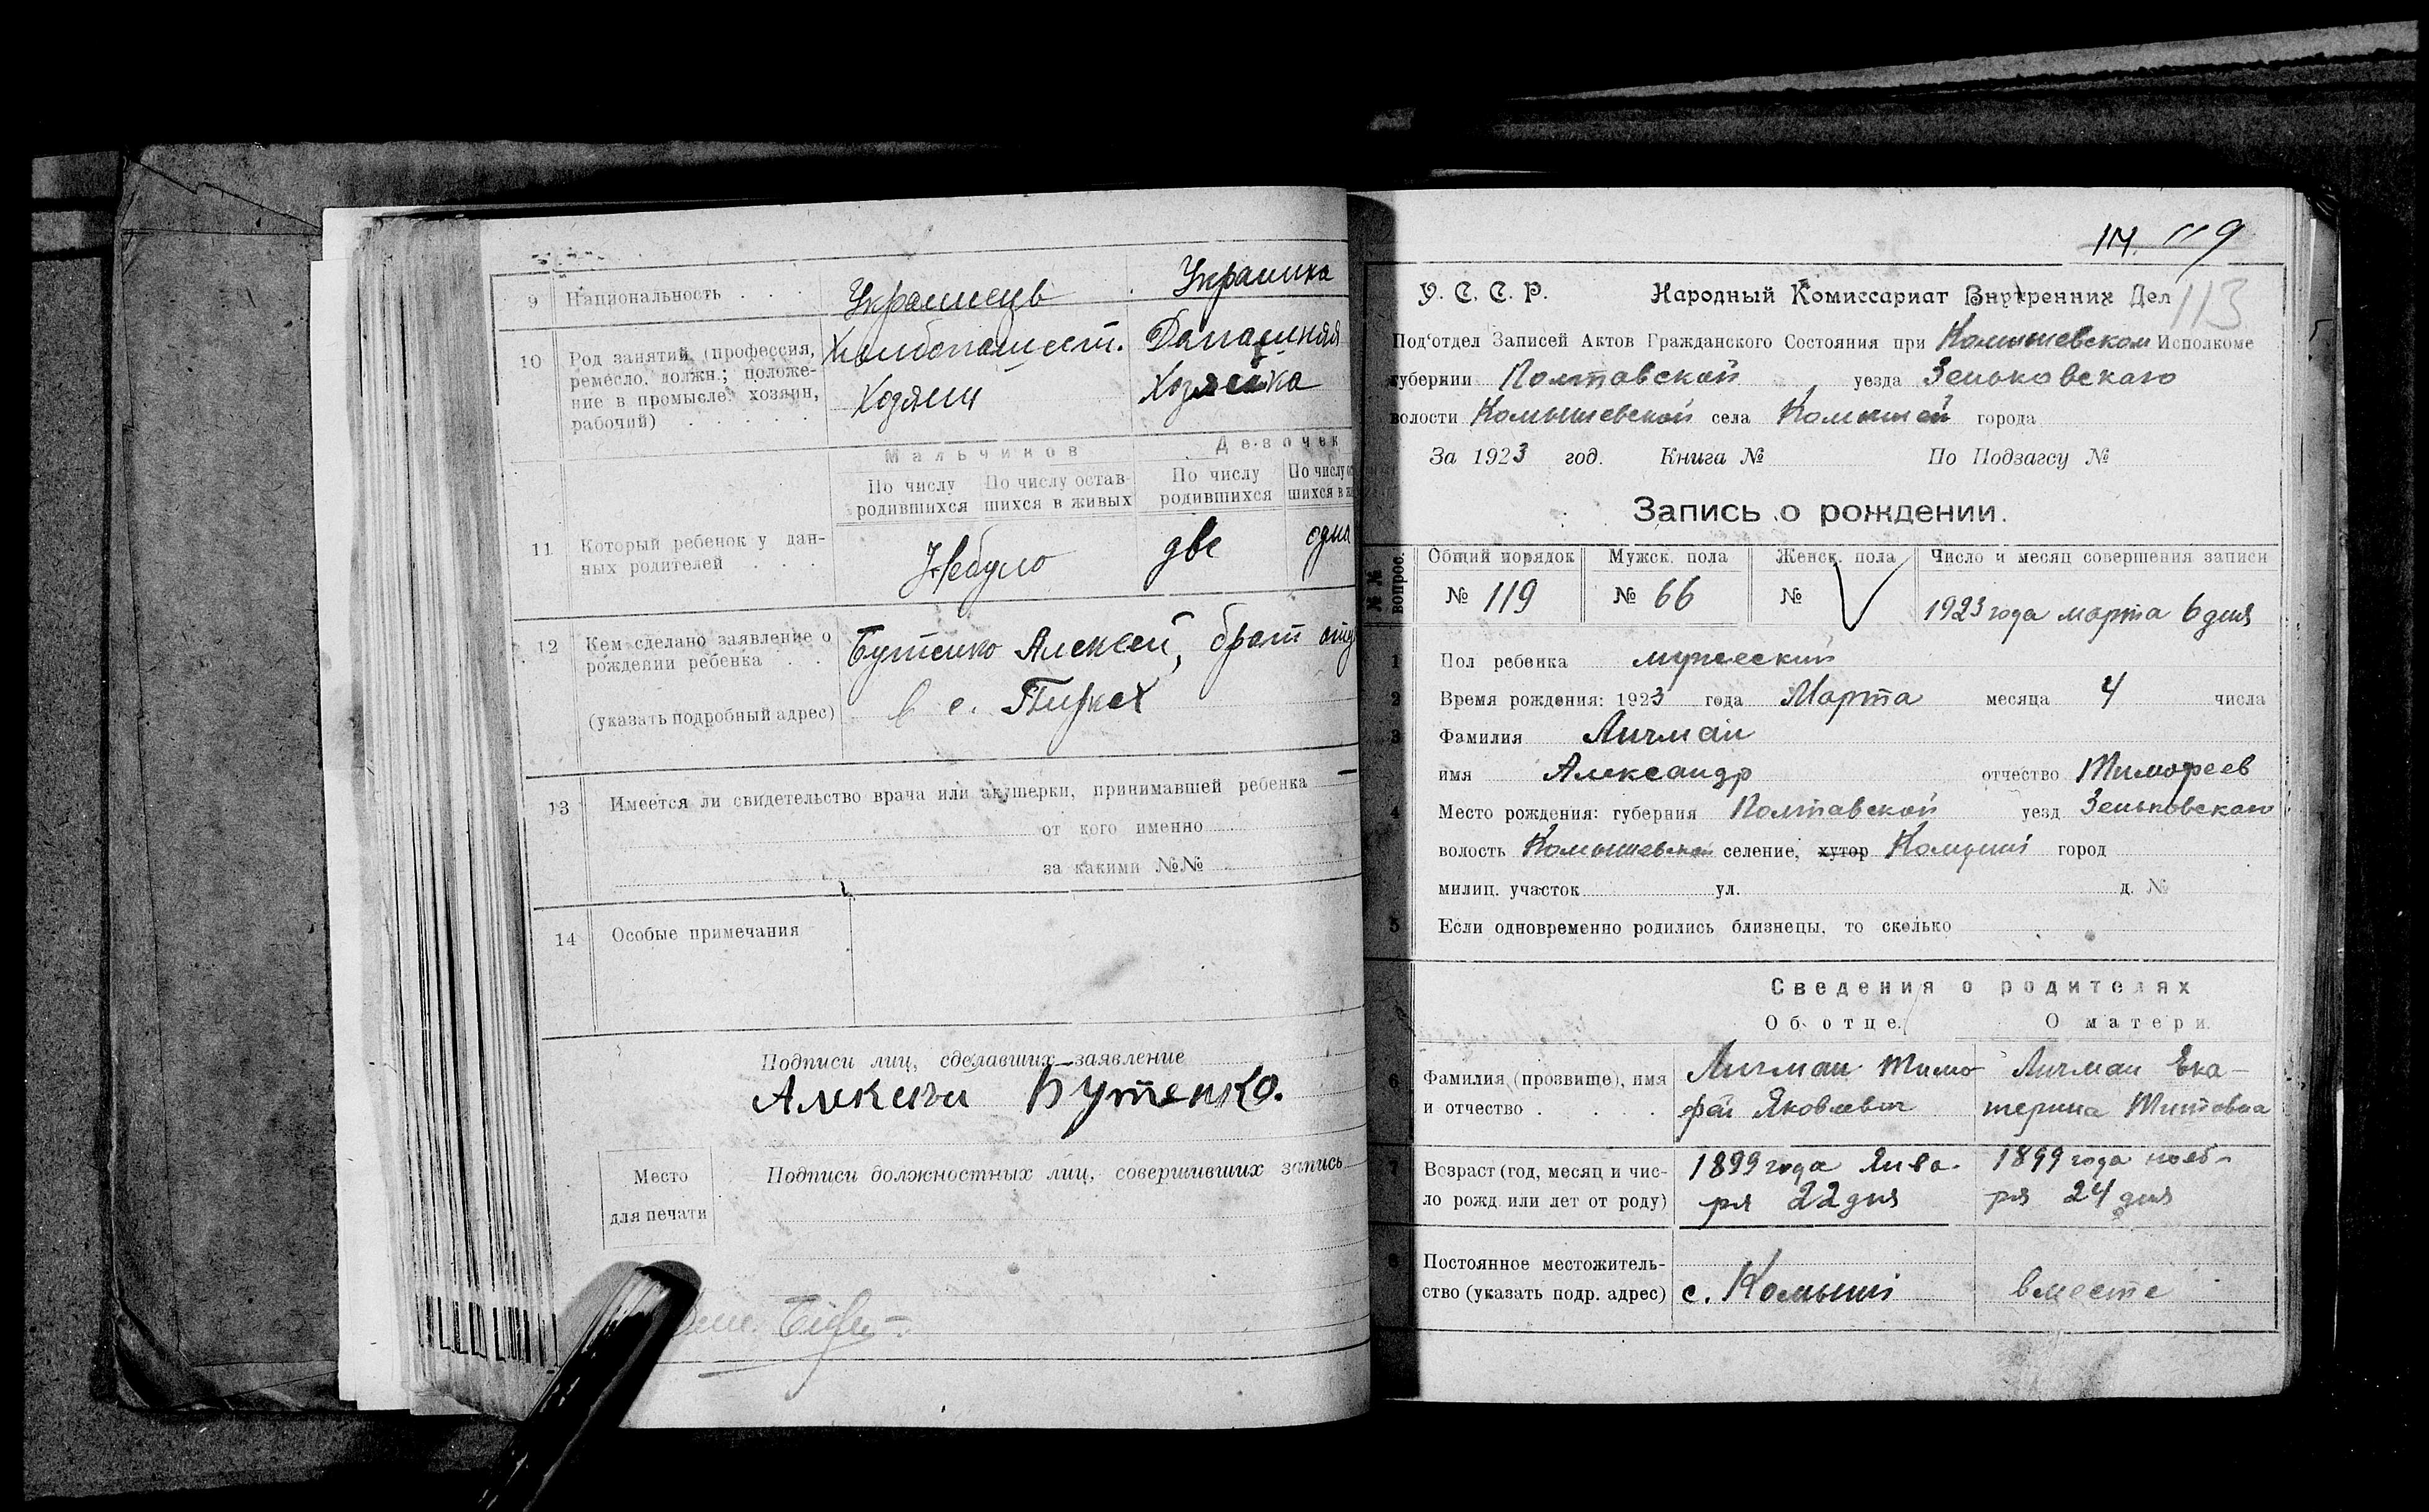 9 Национальность . . . Украинець Украинка
10 Род занятий (профессия, Хлебопашест. Дамашняя
ремесло, должн.; положе-
ние в промысле: хозяин, Хозяин Хозяйка
рабочий) . . . . .
Мальчиков Девочек
По числу По числу остав- По числу По числу о
родившихся шихся в живых родившихся шихся в ж
11 Который ребенок у дан- Небуло две одна
ных родителей . . .
12 Кем сделано заявление о Бутенко Алексей, брат отц
рождении ребенка . .
(указать подробный адрес) в с.
13 Имеется ли свидетельство врача или акушерки, принимавшей ребенка —
от кого именно
за какими №№
14 Особые примечания
Подписи лиц, сделавших заявление
Бутенко.
Место Подписи должностных лиц, совершивших запись
для печати
119
113
У. С. С. Р. Народный Комиссариат Внутренних Дел
Под'отдел Записей Актов Гражданского Состояния при Комышевском Исполкоме
губернии Полтавской уезда Зеньковскаго
волости Комышевской села Комышей города
За 1923 год. Книга № По Подзагсу №
Запись о рождении.
№№ вопрос.
Общий порядок Мужск. пола Женск. пола Число и месяц совершения записи
№ 119 № 66 № 1923 года марта 6 дня
1 Пол ребенка мужеский
2 Время рождения: 1923 года Марта месяца 4 числа
3 Фамилия Личман
имя Александр отчество Тимофеев
4 Место рождения: губерния Полтавской уезд Зеньковскаго
волость Комышевской селение, хутор Комыши город
милиц. участок ул. д. №
5 Если одновременно родились близнецы, то сколько
Сведения о родителях
Об отце. О матери.
6 Фамилия (прозвище), имя Личман Тимо Личман Ека-
и отчество . . . . фей Яковлевич терина Титовна
7 Возраст (год, месяц и чис- 1899 года Янва- 1899 года нояб-
ло рожд. или лет от роду) ря 22 дня ря 24 дня
8 Постоянное местожитель-
ство (указать подр. адрес) с. Комыши вместе